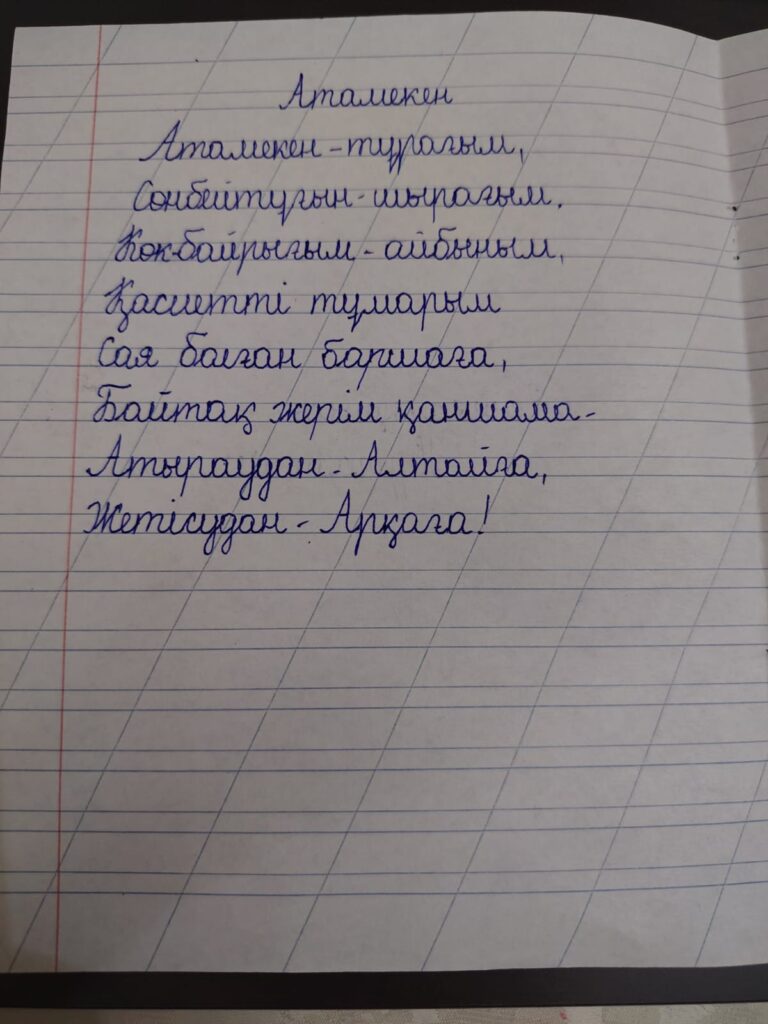 Атамекен
Атамекен-тұрағым,
Сөнбейтұғын-шырағым.
Көк-байрығым-айбыным,
Қасиетті тұмарым
Сая болған баршаға,
Байтақ жерім қаншама-
Атыраудан-Алтайға,
Жетісудан-Арқаға!